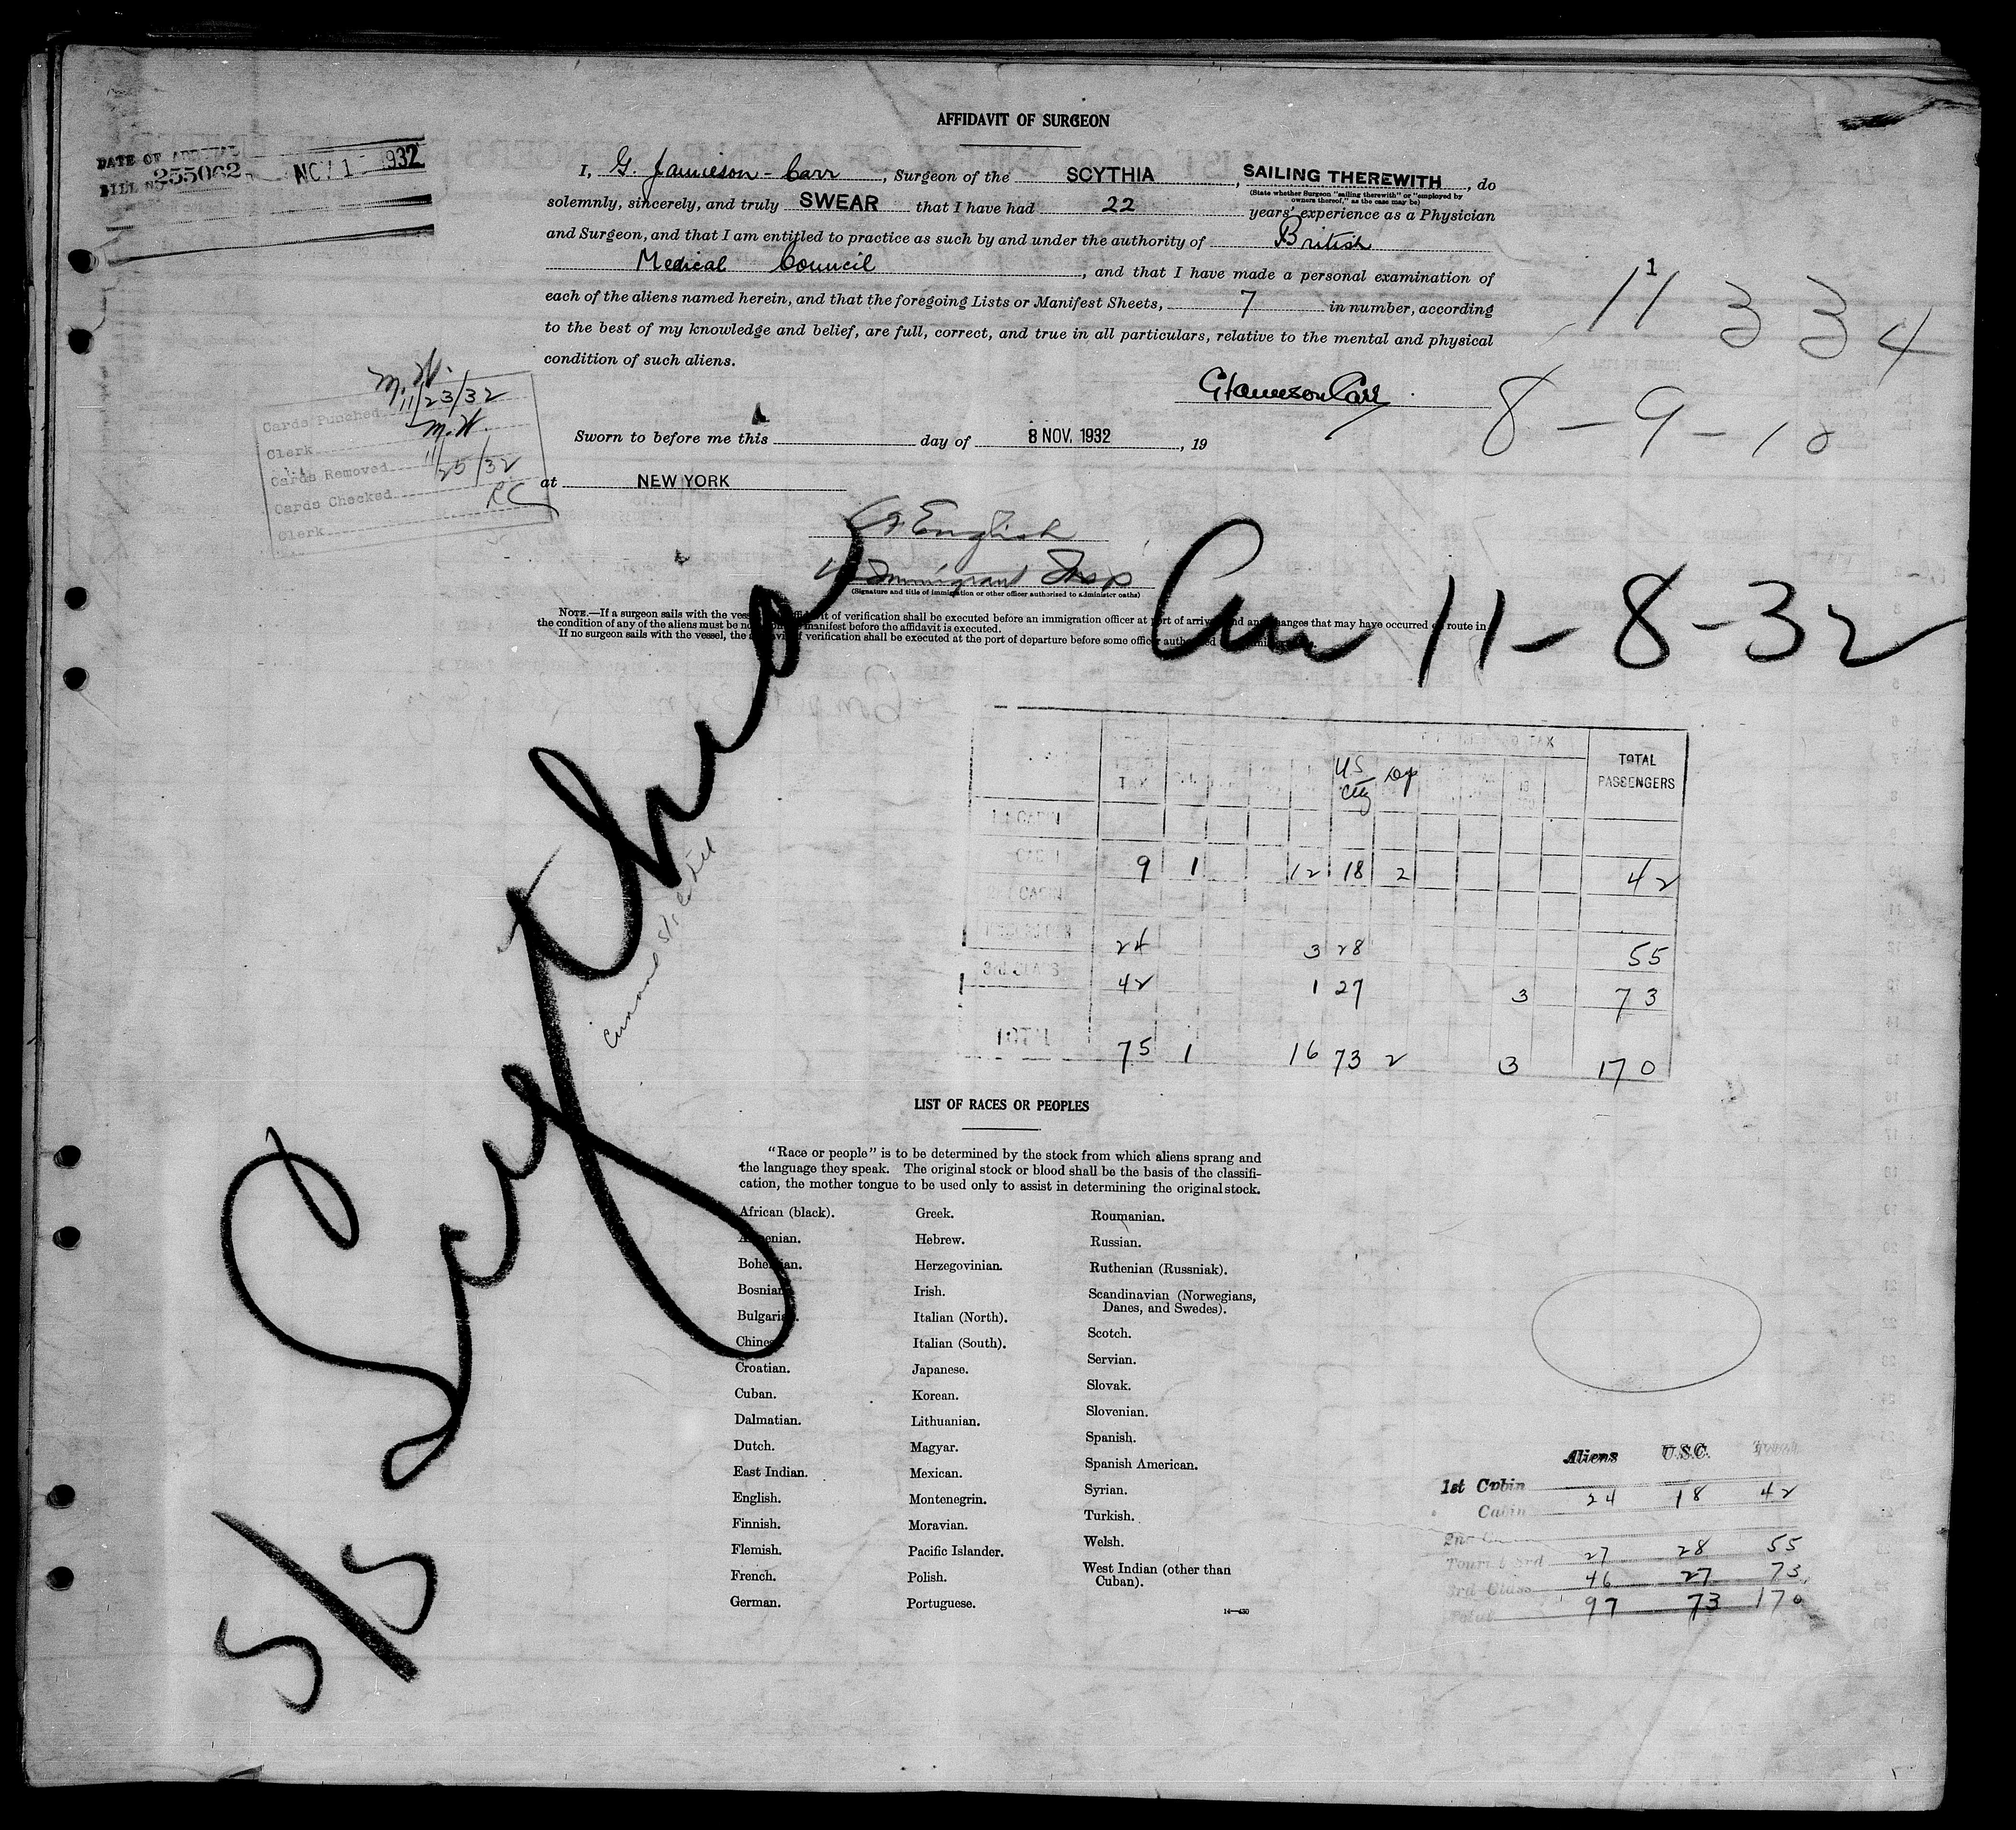 AFFIDAVIT OF SURGEON
DATE OF ARRIVAL
BILL NO. 255062 NOV 1 1932
I, G. Jamieson-Carr, Surgeon of the SCYTHIA, SAILING THEREWITH, do
(State whether Surgeon "sailing therewith" or "employed by owners thereof," as the case may be)
solemnly, sincerely, and truly SWEAR that I have had 22 years' experience as a Physician
and Surgeon, and that I am entitled to practice as such by and under the authority of British
Medical Council, and that I have made a personal examination of
each of the aliens named herein, and that the foregoing Lists or Manifest Sheets, 7 in number, according
to the best of my knowledge and belief, are full, correct, and true in all particulars, relative to the mental and physical
condition of such aliens.
G Jamieson Carr
1
11 334
8-9-10
M.W.
Cards Punched 11/23/32
Clerk M.W.
Cards Removed 11/25/32
Cards Checked RC
Clerk
Sworn to before me this day of 8 NOV. 1932, 19
at NEW YORK
English
Immigrant Insp
(Signature and title of immigration or other officer authorized to administer oaths)
NOTE.—If a surgeon sails with the vessel, the affidavit of verification shall be executed before an immigration officer at port of arrival and any changes that may have occurred en route in
the condition of any of the aliens must be noted on manifest before the affidavit is executed.
If no surgeon sails with the vessel, the affidavit of verification shall be executed at the port of departure before some officer authorized
Arr 11-8-32
S/S Scythia
TAX TOTAL PASSENGERS
TAX U.S City Dip
1st CABIN
CABIN 9 1 12 18 2 42
2nd CABIN
24 3 28 55
3rd CLASS 42 1 27 3 73
TOTAL 75 1 16 73 2 3 170
LIST OF RACES OR PEOPLES
"Race or people" is to be determined by the stock from which aliens sprang and
the language they speak. The original stock or blood shall be the basis of the classifi-
cation, the mother tongue to be used only to assist in determining the original stock.
African (black).
Armenian.
Bohemian.
Bosnian.
Bulgarian.
Chinese.
Croatian.
Cuban.
Dalmatian.
Dutch.
East Indian.
English.
Finnish.
Flemish.
French.
German.
Greek.
Hebrew.
Herzegovinian.
Irish.
Italian (North).
Italian (South).
Japanese.
Korean.
Lithuanian.
Magyar.
Mexican.
Montenegrin.
Moravian.
Pacific Islander.
Polish.
Portuguese.
Roumanian.
Russian.
Ruthenian (Russniak).
Scandinavian (Norwegians,
Danes, and Swedes).
Scotch.
Servian.
Slovak.
Slovenian.
Spanish.
Spanish American.
Syrian.
Turkish.
Welsh.
West Indian (other than
Cuban).
14—430
Aliens U.S.C. Total
1st Cabin 24 18 42
Cabin
2nd
Tourist 3rd 27 28 55
3rd Class 46 27 73
Total 97 73 170